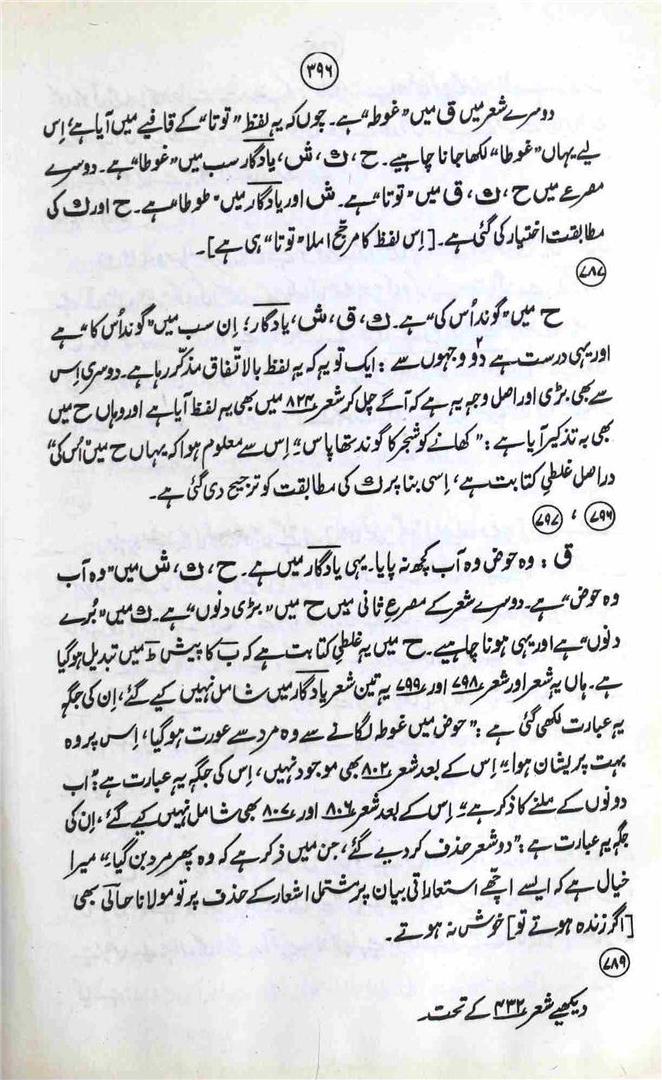 ۳۹۶
دوسرے شعر میں ق میں "غوطہ" ہے۔ چوں کہ یہ لفظ "توتا" کے قافیے میں آیا ہے، اِس
لیے یہاں "غوطا" لکھا جانا چاہیے۔ ح، ک، ش، یادگار سب میں "غوطا" ہے۔ دوسرے
مصرعے میں ح، ک، ق میں "توتا" ہے۔ ش اور یادگار میں "طوطا" ہے۔ ح اور ک کی
مطابقت اختیار کی گئی ہے۔ [اِس لفظ کا مرجّح املا "توتا" ہی ہے]۔
۷۸۷
ح میں "گوند اُس کی" ہے۔ ک، ق، ش، یادگار؛ اِن سب میں "گوند اُس کا" ہے
اور یہی درست ہے دو ۲ وجہوں سے: ایک تو یہ کہ یہ لفظ بالاتفاق مذکّر رہا ہے۔ دوسری اِس
سے بھی بڑی اور اصل وجہ یہ ہے کہ آگے چل کر شعر ۸۲۴ میں بھی یہ لفظ آیا ہے اور وہاں ح میں
بھی بہ تذکیر آیا ہے: "کھانے کو شجر کا گوند تھا پاس"۔ اِس سے معلوم ہوا کہ یہاں ح میں "اُس کی"
دراصل غلطیِ کتابت ہے، اِسی بنا پر ک کی مطابقت کو ترجیح دی گئی ہے۔
۷۹۶، ۷۹۷
ق: وہ حوض وہ آب کچھ نہ پایا۔ یہی یادگار میں ہے۔ ح، ک، ش میں "وہ آب
وہ حوض" ہے۔ دوسرے شعر کے مصرعِ ثانی میں ح میں "بڑی دنوں" ہے۔ ک میں "بُرے
دنوں" ہے اور یہی ہونا چاہیے۔ ح میں یہ غلطیِ کتابت ہے کہ ب کا پیش ط میں تبدیل ہوگیا
ہے۔ ہاں یہ شعر اور شعر ۷۹۸ اور ۷۹۹ یہ تین شعر یادگار میں شامل نہیں کیے گئے، اِن کی جگہ
یہ عبارت لکھی گئی ہے: "حوض میں غوطہ لگانے سے وہ مرد سے عورت ہوگیا، اِس پر وہ
بہت پریشان ہوا"۔ اِس کے بعد شعر ۸۰۲ بھی موجود نہیں، اِس کی جگہ یہ عبارت ہے: "اب
دونوں کے ملنے کا ذکر ہے"۔ اِس کے بعد شعر ۸۰۶ اور ۸۰۷ بھی شامل نہیں کیے گئے، اِن کی
جگہ یہ عبارت ہے: "دو شعر حذف کر دیے گئے، جن میں ذکر ہے کہ وہ پھر مرد بن گیا"۔ میرا
خیال ہے کہ ایسے اچھّے استعاراتی بیان پر مشتمل اشعار کے حذف پر تو مولانا حالی بھی
[اگر زندہ ہوتے تو] خوش نہ ہوتے۔
۷۸۹
دیکھیے شعر ۴۳۲ کے تحت